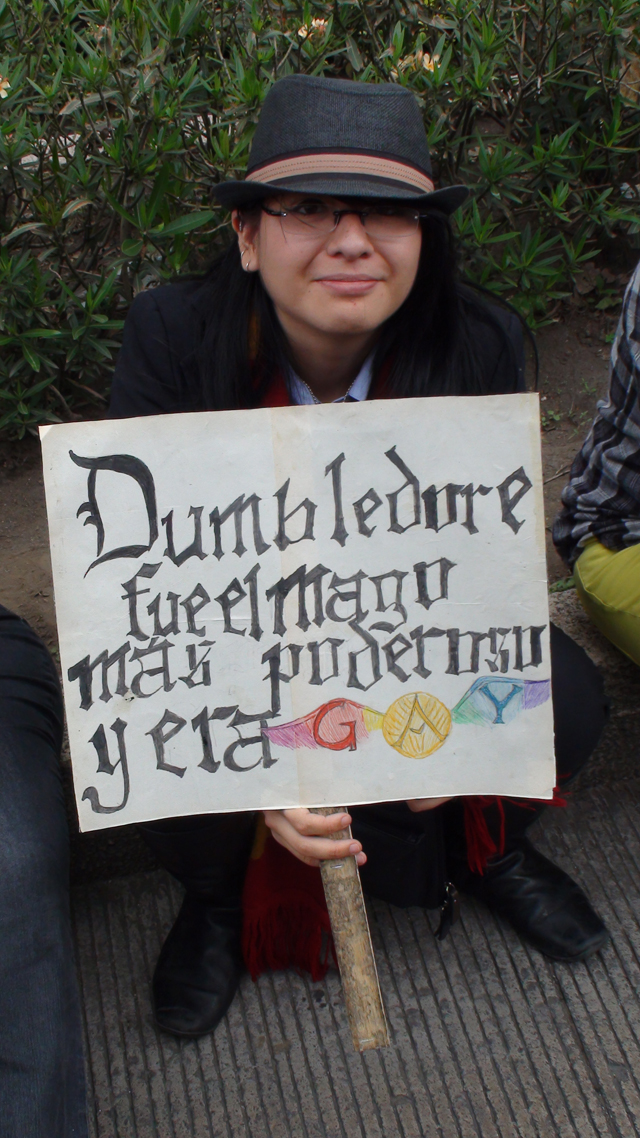 Dumbledore
fue el mago
más poderoso
y era GAY